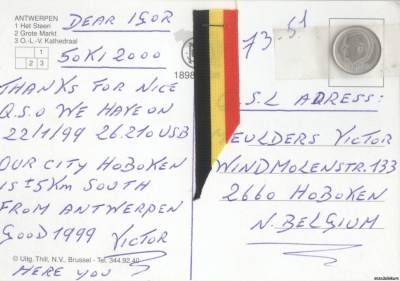 ANTWERPEN
1 Het Steen
2 Grote Markt
3 O.-L.-V. Kathedraal
1
2 3
DEAR IGOR
50KI2000
THANKS FOR NICE
Q.S.O WE HAVE ON
22/1/99 26.210 USB
OUR CITY HOBOKEN
IS ±5KM SOUTH
FROM ANTWERPEN
GOOD 1999 VICTOR
© Uitg. Thill, N.V., Brussel - Tel. 344.92.40
HERE YOU
1898
73 51
Q.S.L ADRESS:
MEULDERS VICTOR
WINDMOLENSTR.133
2660 HOBOKEN
N.BELGIUM